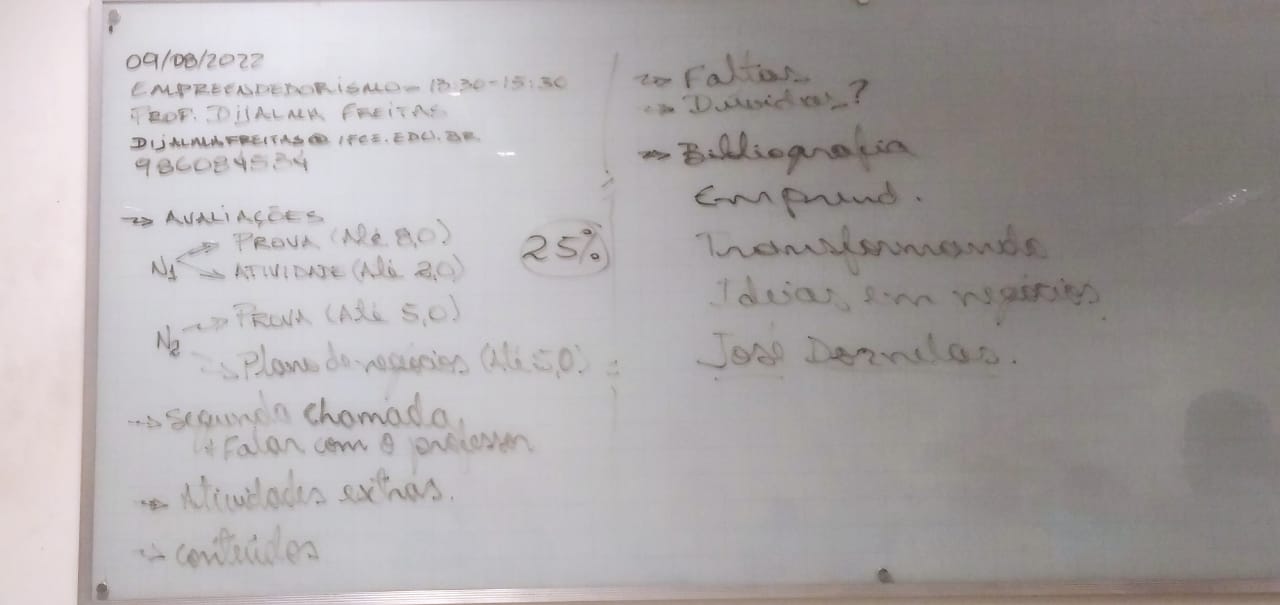 09/08/2022
EMPREENDEDORISMO - 13:30-15:30
PROF. DIJALMA FREITAS
DIJALMA.FREITAS@IFCE.EDU.BR
986084534
→ AVALIAÇÕES
N1 → PROVA (Até 8,0)
→ ATIVIDADE (Até 2,0)
25%
N2 → PROVA (Até 5,0)
→ Plano de negócios (Até 5,0)
→ Segunda chamada,
+ Falar com o professor
→ Atividades extras.
→ conteúdos
→ Faltas
→ Dúvidas?
→ Bibliografia
Emprend.
Transformando
Ideias em negócios
José Dornelas.